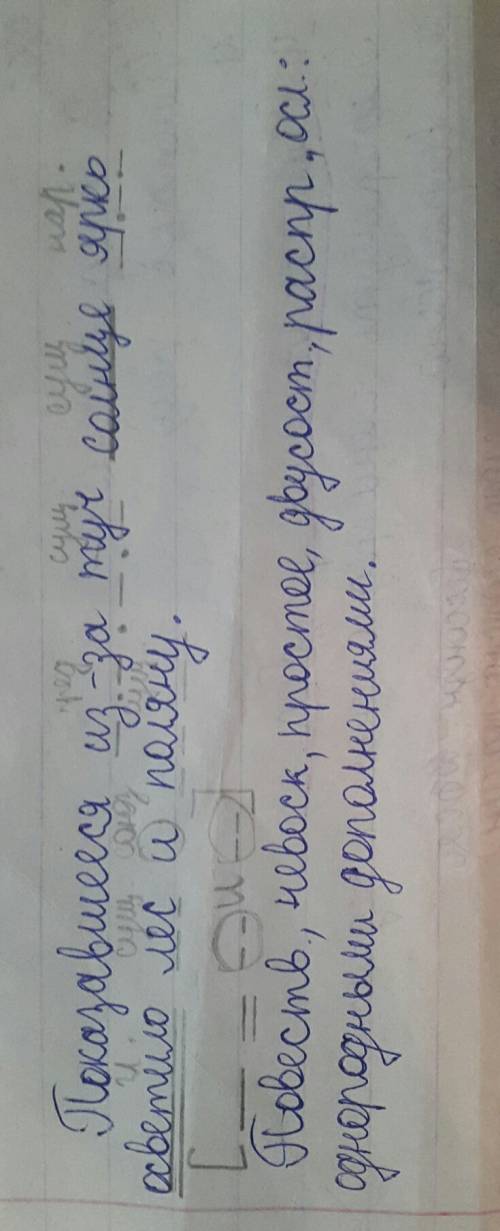 пред сущ сущ нар.
Показавшееся из-за туч солнце ярко
г. сущ союз сущ
осветило лес и поляну.
[— = ⊖ и ⊖]
Повеств., невоск, простое, двусост, распр, осл.:
однородными дополнениями.